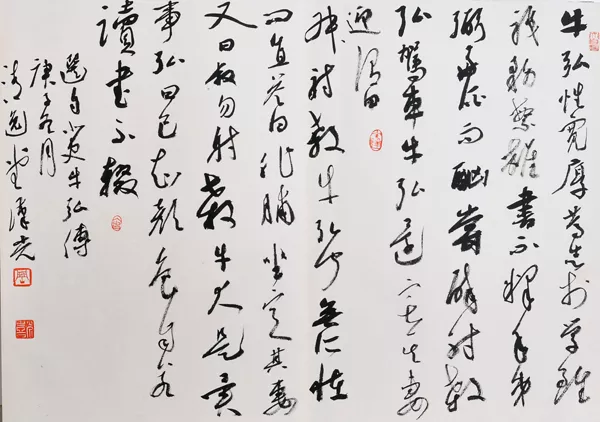 牛弘性寬厚篤志於學雖
職務繁雜書不釋手弟
弼好酒而酗嘗醉射殺
弘駕車牛弘還宅其妻
迎謂曰
叔射殺牛弘聞無所怪
問直答曰作脯坐定其妻
又曰叔忽射殺牛大是異
事弘曰已知顏色自若
讀書不輟
選自史牛弘傳
庚子冬月